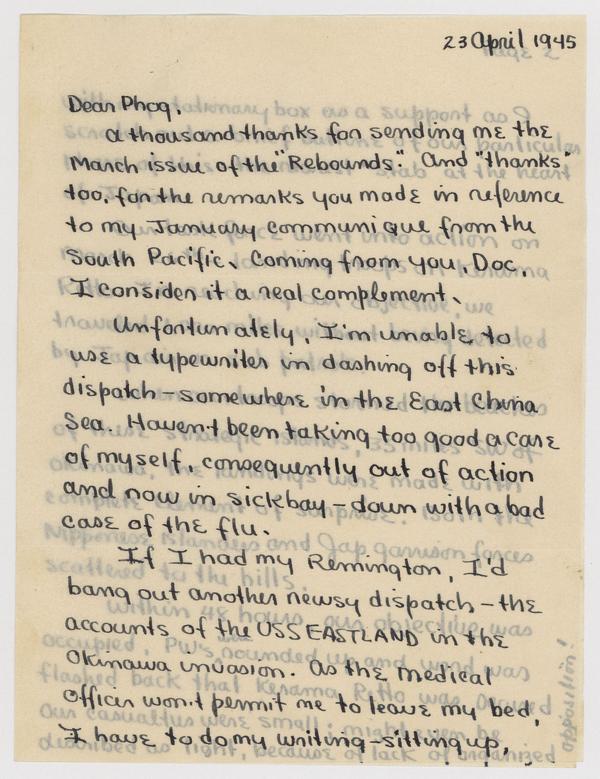 23 April 1945
Page 2
Dear Phog,
a thousand thanks for sending me the
March issue of the "Rebounds." And "thanks"
too, for the remarks you made in reference
to my January communique from the
South Pacific. Coming from you, Doc,
I consider it a real complement.
Unfortunately, I'm unable to
use a typewriter in dashing off this
dispatch - somewhere in the East China
Sea. Haven't been taking too good a care
of myself, consequently out of action
and now in sickbay - down with a bad
case of the flu.
If I had my Remington, I'd
bang out another newsy dispatch - the
accounts of the USS EASTLAND in the
Okinawa invasion. As the medical
officer won't permit me to leave my bed,
I have to do my writing - sitting up,